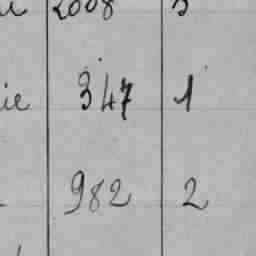 2008
ie 347 1
982 2